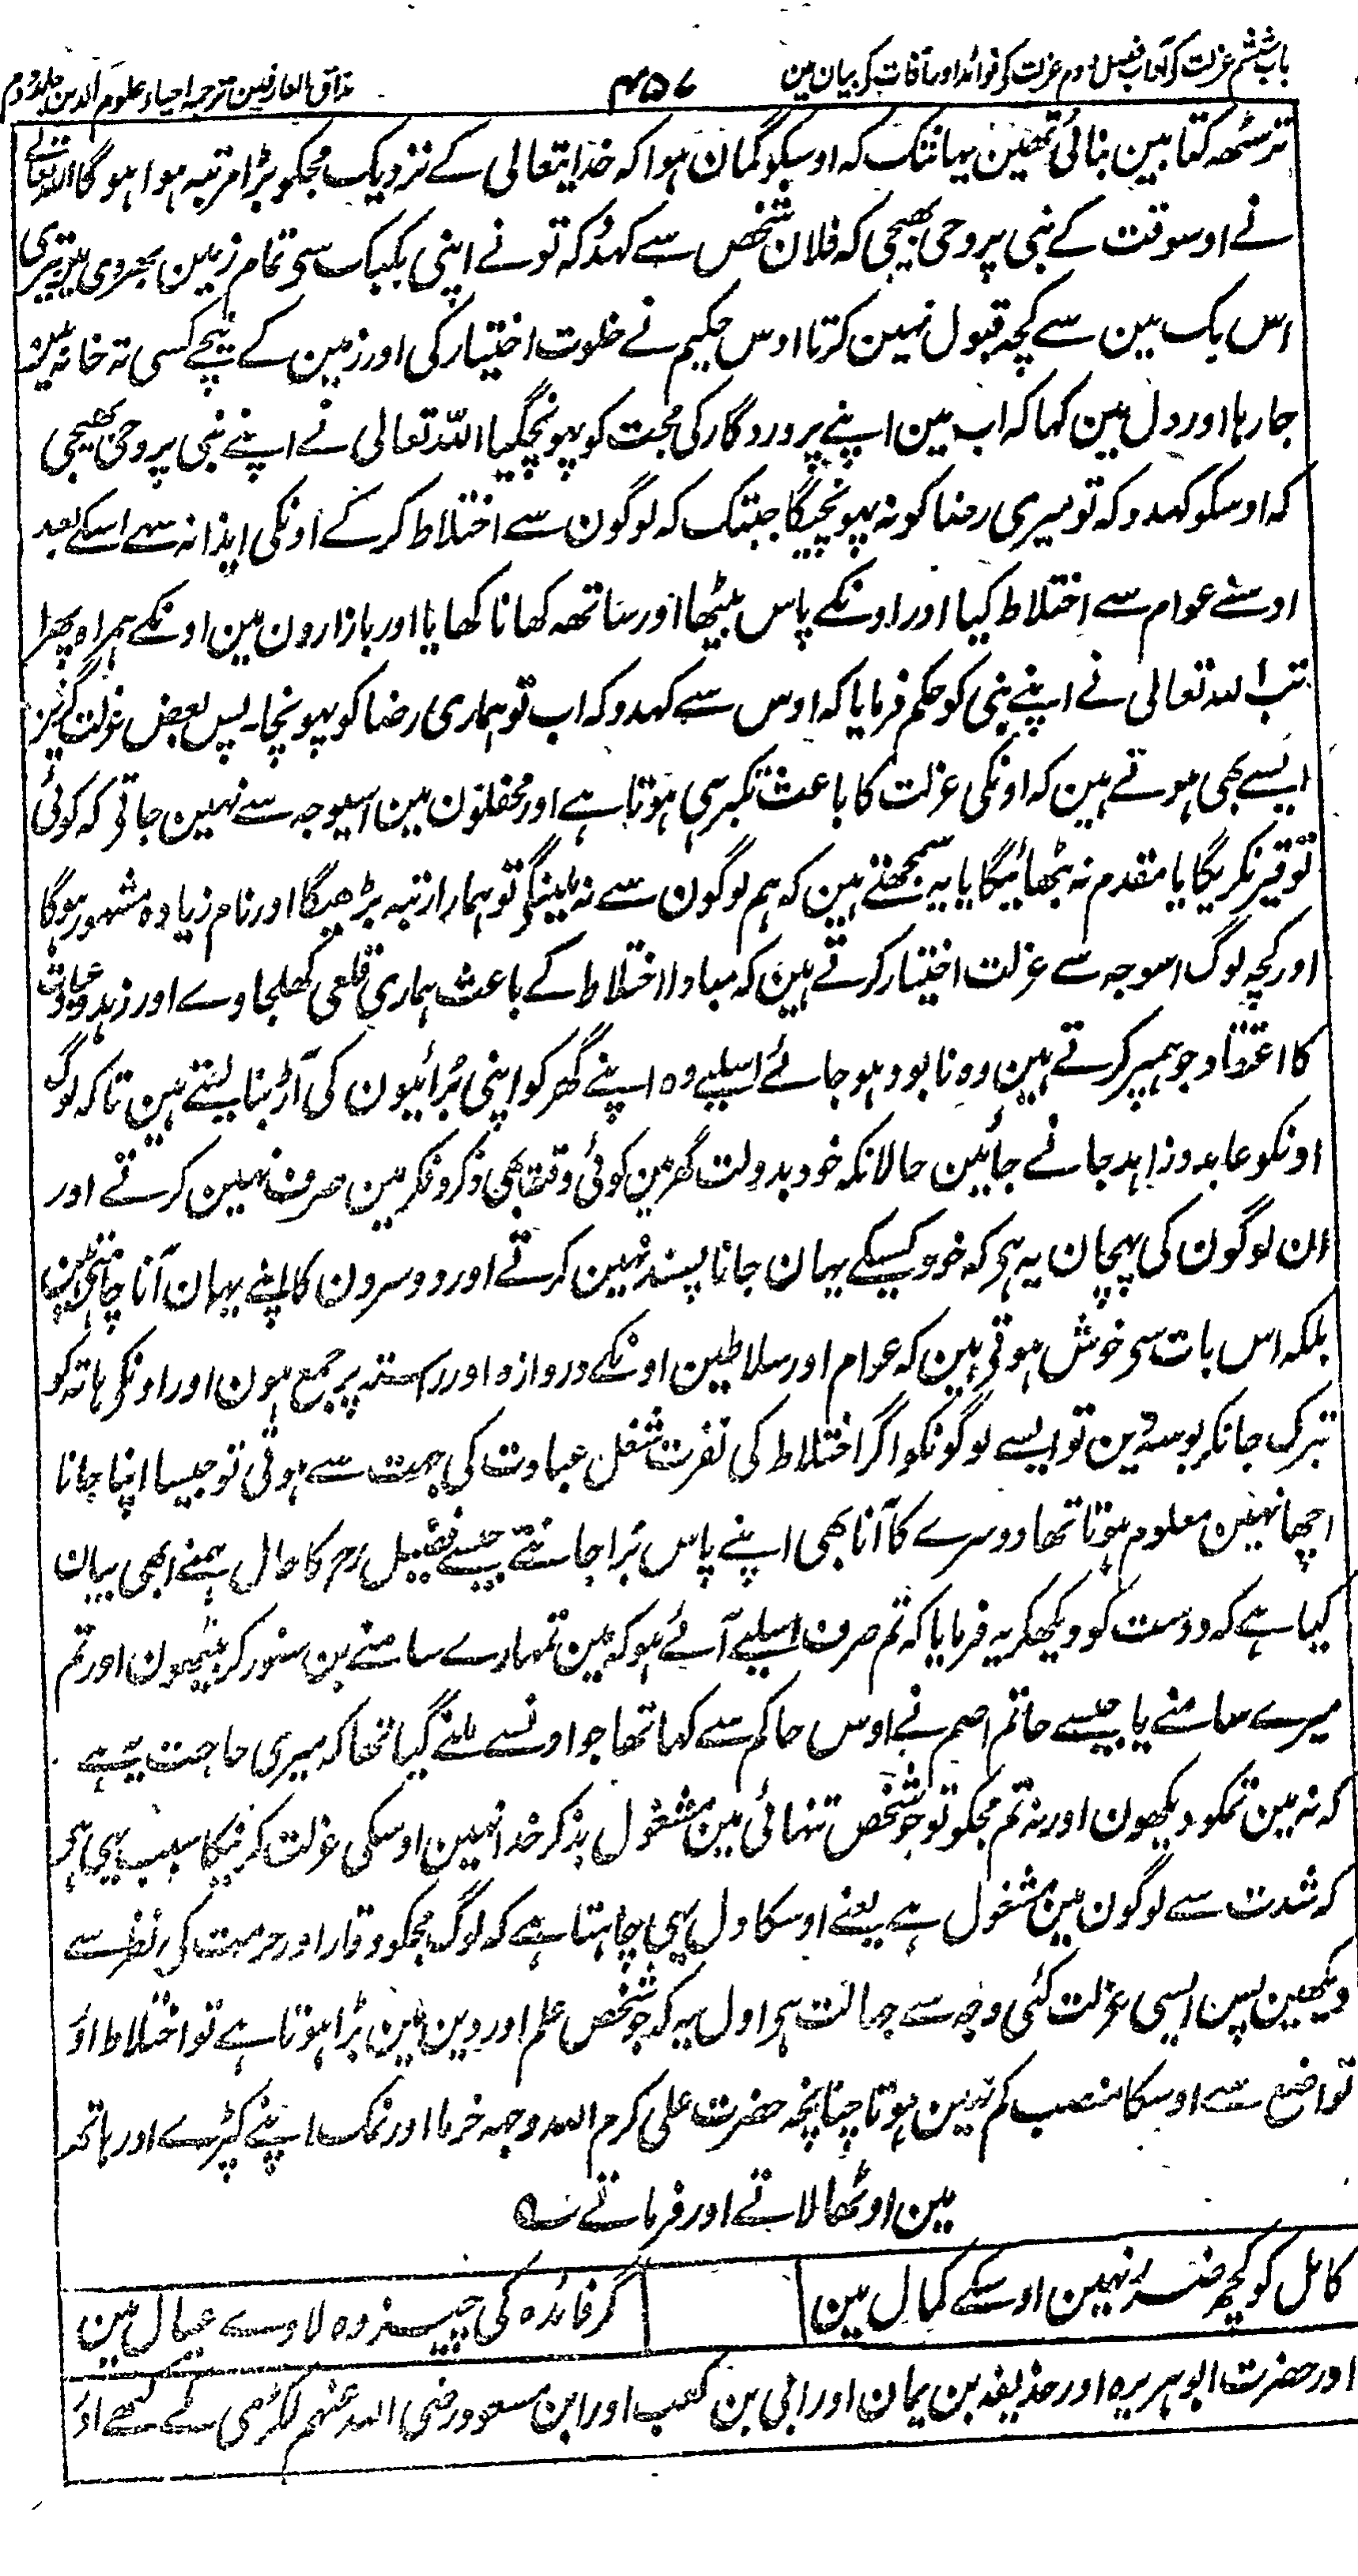 باب ششم عزلت کے آداب فصل دوم عزلت کے فوائد اور آفات کے بیان مین
۴۵۷
مذاق العارفین ترجمہ احیاء علوم الدین جلد دوم
ترسٹھہ کتابین بنائی تھین یہانتک کہ اوسکو گمان ہوا کہ خدایتعالی کے نزدیک مجکو بڑا مرتبہ ہوا ہوگا اللہ تعالے
نے اوسوقت کے نبی پر وحی بھیجی کہ فلان شخص سے کہدو کہ تو نے اپنی بکبک سی تمام زمین بھر دی تیری
اس بک مین سے کچھ قبول نہین کرتا اوس حکیم نے خلوت اختیار کی اور زمین کے نیچے کسی تہ خانہ مین
جا رہا اور دل مین کہا کہ اب مین اپنے پروردگار کی محبت کو پہونچگیا اللہ تعالی نے اپنے نبی پر وحی بھیجی
کہ اوسکو کہدو کہ تو میری رضا کو نہ پہونچیگا جبتک کہ لوگون سے اختلاط کرکے اونکی ایذا نہ سہے اسکے بعد
اوسنے عوام سے اختلاط کیا اور اونکے پاس بیٹھا اور ساتھہ کھانا کھایا اور بازارون مین اونکے ہمراہ پھرا
تب اللہ تعالی نے اپنے نبی کو حکم فرمایا کہ اوس سے کہدو کہ اب تو ہماری رضا کو پہونچا۔ پس بعض عزلت گزین
ایسے بھی ہوتے ہین کہ اونکی عزلت کا باعث تکبر ہی ہوتا ہے اور محفلون مین اسیوجہ سے نہین جاتے کہ کوئی
توقیر نکریگا یا مقدم نہ بٹھائیگا یا یہ سمجھتے ہین کہ ہم لوگون سے نہ ملینگے تو ہمارا رتبہ بڑھیگا اور نام زیادہ مشہور ہوگا
اور کچھ لوگ اسوجہ سے عزلت اختیار کرتے ہین کہ مبادا اختلاط کے باعث ہماری قلعی کھلجاوے اور زہد وعبادت
کا اعتقاد جو ہمپر کرتے ہین وہ نابود ہو جائے اسلیے وہ اپنے گھر کو اپنی برائیون کی آڑ بنا لیتے ہین تاکہ لوگ
اونکو عابد و زاہد جانے جائین حالانکہ خود بدولت گھر مین کوئی وقت بھی ذکر وفکر مین صرف نہین کرتے اور
ان لوگون کی پہچان یہ ہے کہ خود کسیکے یہان جانا پسند نہین کرتے اور دوسرون کا اپنے یہان آنا چاہتے ہین
بلکہ اس بات سی خوش ہوتے ہین کہ عوام اور سلاطین اونکے دروازہ اور رستہ پر جمع ہون اور اونکے ہاتہ کو
تبرک جانکر بوسہ دین تو ایسے لوگونکو اگر اختلاط کی نفرت شغل عبادت کی جہت سے ہوتی تو جیسا اپنا جانا
اچھا نہین معلوم ہوتا تھا دوسرے کا آنا بھی اپنے پاس برا جانتے جیسے فضیل رح کا حال ہمنے ابھی بیان
کیا ہے کہ دوست کو دیکھکر یہ فرمایا کہ تم صرف اسلیے آئے ہو کہ مین تمہارے سامنے بن سنور کر بیٹھون اور تم
میرے سامنے یا جیسے حاتم اصم نے اوس حاکم سے کہا تھا جو اونسے ملنے گیا تھا کہ میری حاجت یہ ہے
کہ نہ مین تمکو دیکھون اور نہ تم مجکو تو جو شخص تنہائی مین مشغول بذکر خدا نہین اوسکی عزلت کرنیکا سبب یہی ہے
کہ شدت سے لوگون مین مشغول ہے یعنے اوسکا دل یہی چاہتا ہے کہ لوگ مجکو وقار اور حرمت کی نظر سے
دیکھین پس ایسی عزلت کئی وجہ سے جہالت ہے اول یہ کہ جو شخص علم اور دین مین بڑا ہوتا ہے تو اختلاط اور
تواضع سے اوسکا منصب کم نہین ہوتا چنانچہ حضرت علی کرم اللہ وجہہ خرما اور نمک اپنے کپڑے اور ہاتھ
مین اوٹھا لاتے اور فرماتے ؎
کامل کو کچھ ضرر نہین اوسکے کمال مین
گر فائدہ کی چیز وہ لاوے عیال مین
اور حضرت ابوہریرہ اور حذیفہ بن یمان اور ابی بن کعب اور ابن مسعود رضی اللہ عنہم لکڑی کے گٹھے اور